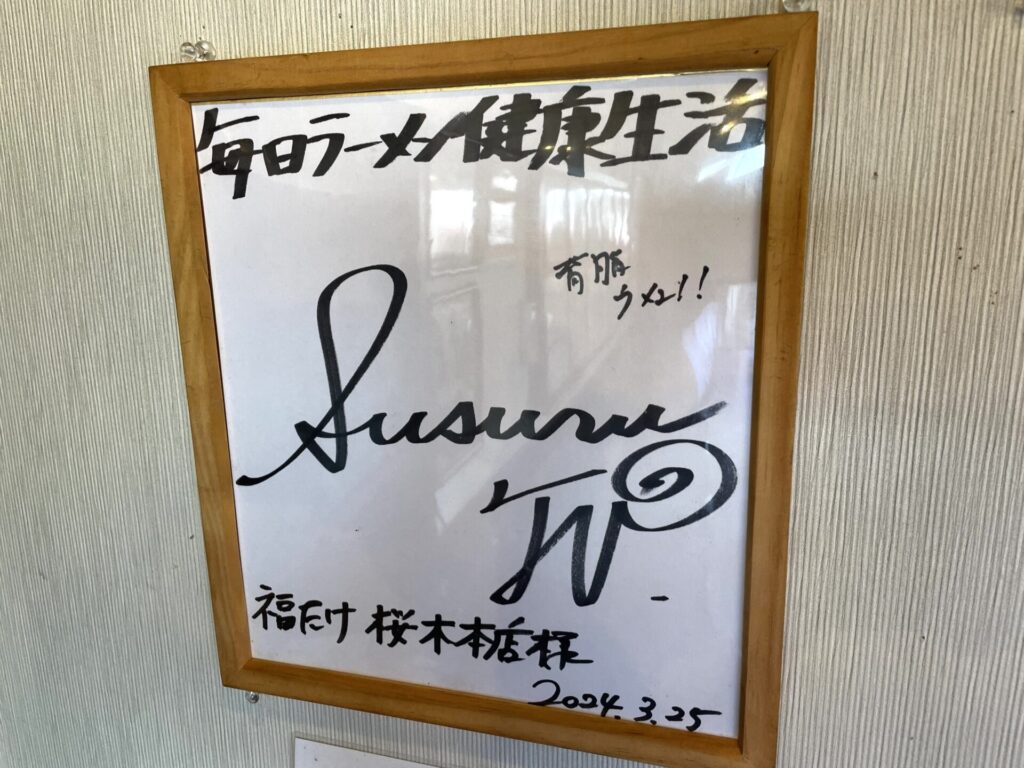 毎日ラーメン健康生活
背脂
ウメェ!!
Susuru
TV
福たけ 桜木本店様
2024.3.25